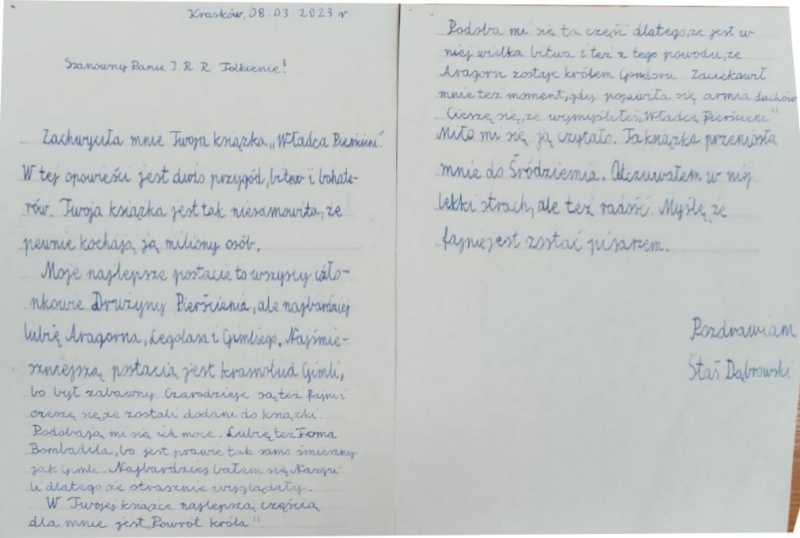 Krasków, 08.03.2023 r
Szanowny Panie J. R. R. Tolkienie!
Zachwyciła mnie Twoja książka „Władca Pierścieni".
W tej opowieści jest dużo przygód, bitew i bohate-
rów. Twoja książka jest tak niesamowita, że
pewnie kochają ją miliony osób.
Moje najlepsze postacie to wszyscy czło-
nkowie Drużyny Pierścienia, ale najbardziej
lubię Aragorna, Legolasa i Gimliego. Najśmie-
szniejszą postacią jest krasnolud Gimli,
bo był zabawny. Czarodzieje są też fajni i
cieszę się, że zostali dodani do książki.
Podobają mi się ich moce. Lubię też Toma
Bombadila, bo jest prawie tak samo śmieszny
jak Gimli. Najbardziej bałem się Nazgu-
li dlatego, że strasznie wyglądały.
W Twojej książce najlepszą częścią
dla mnie jest „Powrót króla"
Podoba mi się ta część dlatego, że jest w
niej wielka bitwa i też z tego powodu, że
Aragorn zostaje królem Gondoru. Zaciekawił
mnie też moment, gdy pojawiła się armia duchów.
Cieszę się, że wymyśliłeś „Władcę Pierścieni"
Miło mi się ją czytało. Ta książka przeniosła
mnie do Śródziemia. Odczuwałem w niej
lekki strach, ale też radość. Myślę, że
fajnie jest zostać pisarzem.
Pozdrawiam
Staś Dąbrowski